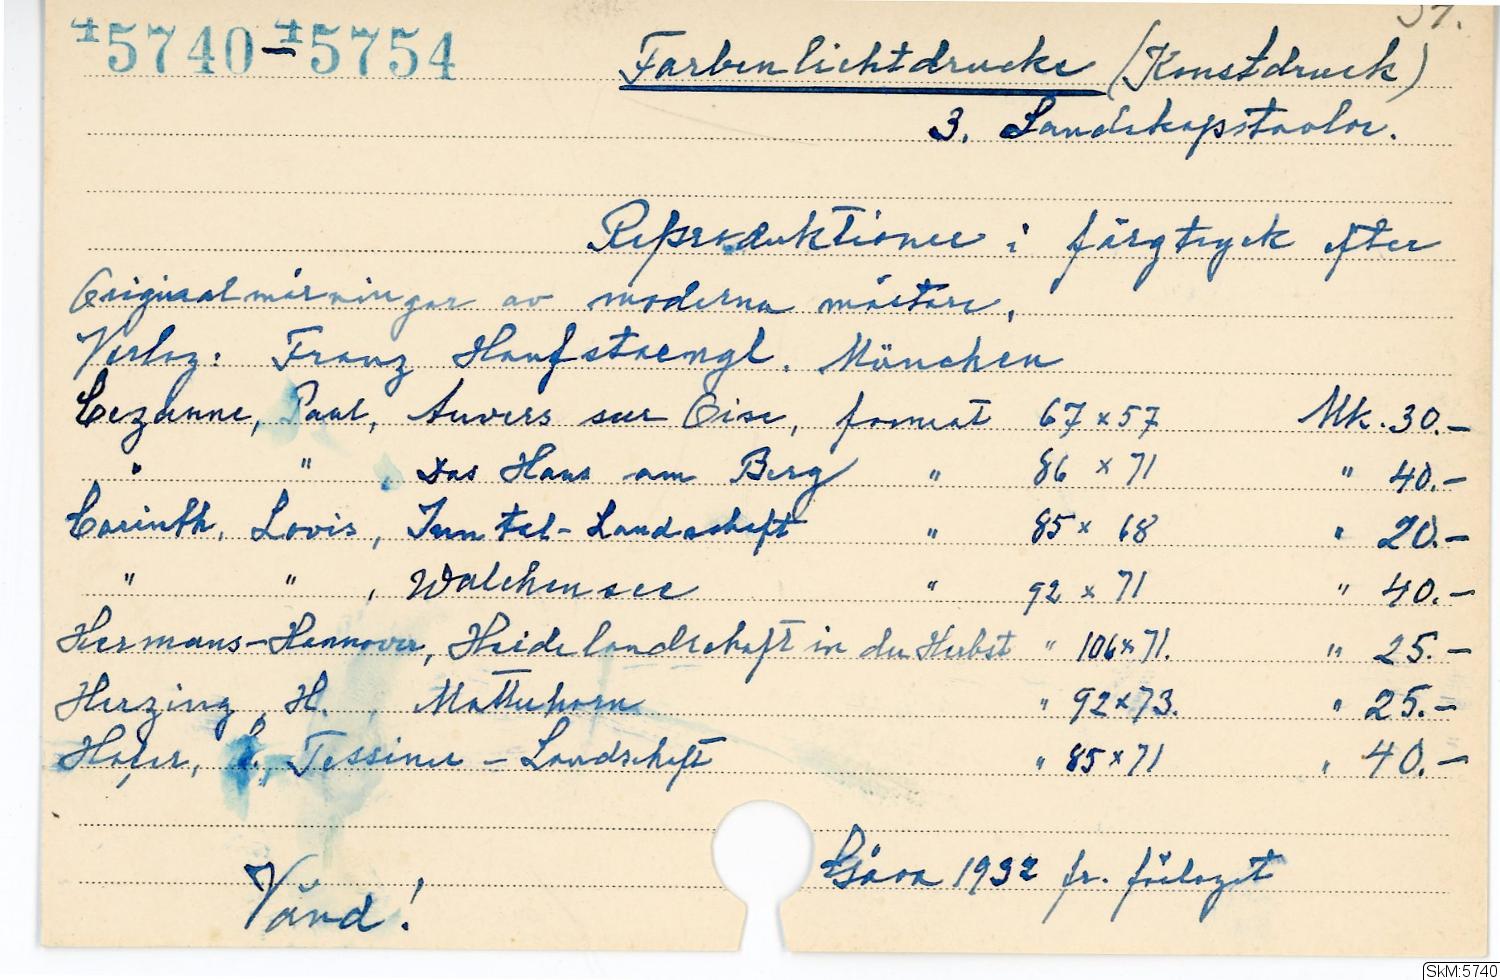 51.
45740-45754
Farbenlichtdrucke (Konstdruck)
3. Landskapstavlor.
Reproduktioner i färgtryck efter
Originalmålningar av moderna mästare.
Verlag: Franz Hanfstaengl. München
Cezanne, Paul, Auvers sur Oise, format 67 x 57 Mk. 30.-
" " , Das Haus am Berg " 86 x 71 " 40.-
Corinth, Lovis, Inntal-Landschaft " 85 x 68 " 20.-
" " , Walchensee " 92 x 71 " 40.-
Hermans-Hannover, Heidelandschaft in der Herbst " 106x71. " 25.-
Herzing, H., Matterhorn " 92x73. " 25.-
Hofer, , Tessiner-Landschaft " 85x71 " 40.-
Gåva 1932 fr. förlaget
Vänd!
SkM:5740